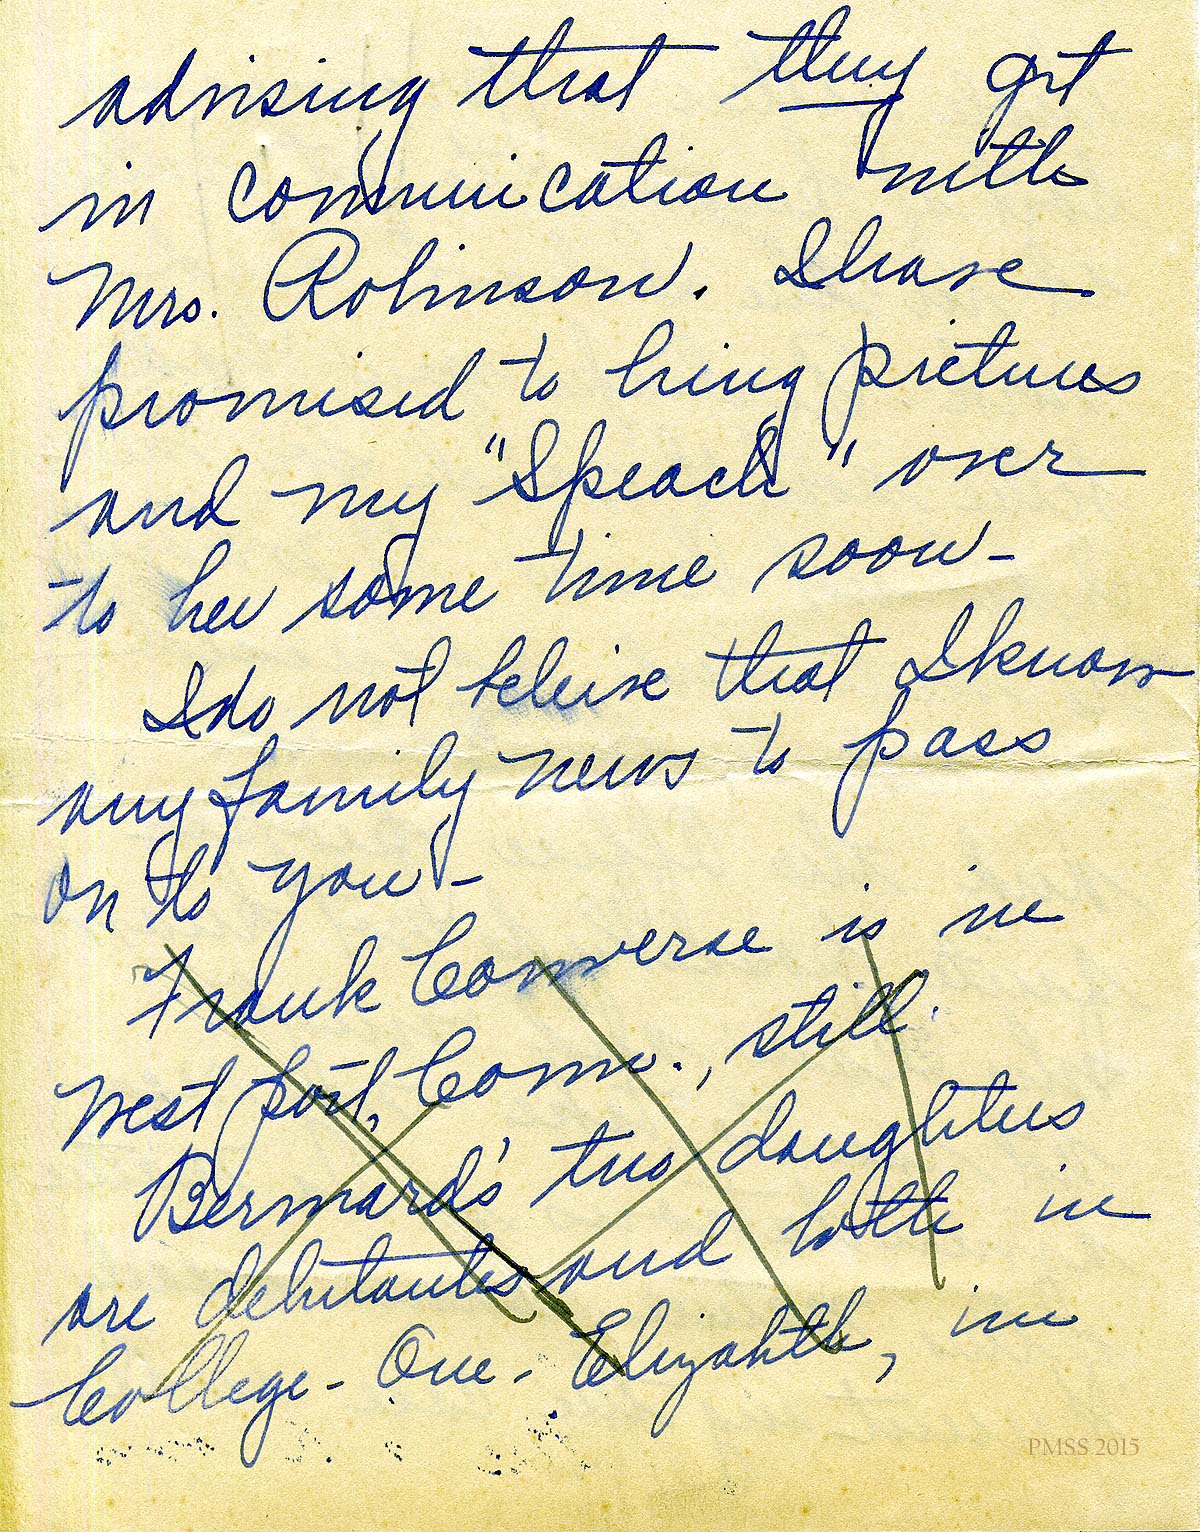 advising that they get
in communication with
Mrs. Robinson. I have
promised to bring pictures
and my "Speach" over
to her some time soon -
I do not beleive that I know
any family news to pass
on to you -
Frank Converse is in
West port, Conn., still.
Bernard's two daughters
are debutantes and both in
College - One - Elizabeth, in
PMSS 2015